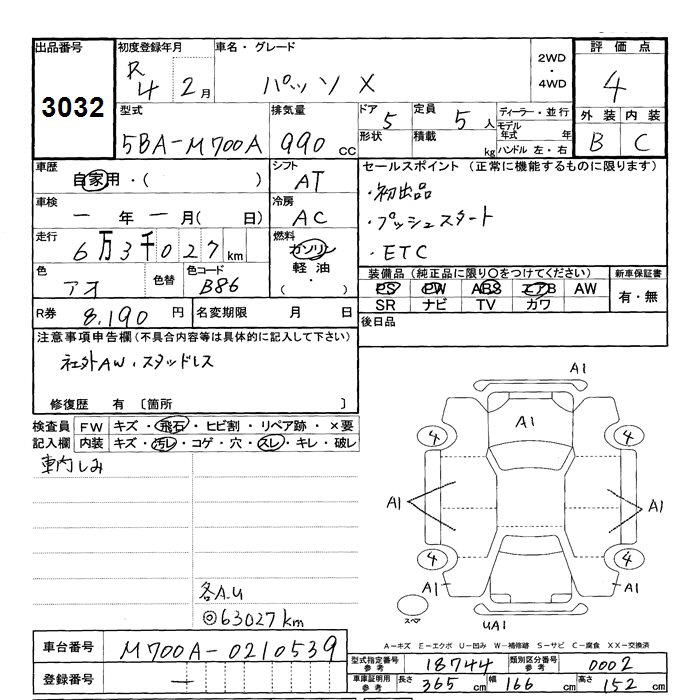 出品番号 初度登録年月 車名・グレード 2WD・4WD 評価点
3032 R4 2月 パッソ X 4
型式 排気量 ドア 5 定員 5人 ディーラー・並行 外装 内装
5BA-M700A 990cc 形状 積載 kg モデル年式 年 B C
ハンドル 左・右
車歴 シフト セールスポイント (正常に機能するものに限ります)
自家用・( ) AT ・初出品
車検 冷房 ・プッシュスタート
一年一月( 日) AC ・ETC
走行 燃料
6万3千027km ガソリン
軽油
( ・ )
色 色替 色コード 装備品 (純正品に限り○をつけてください) 新車保証書
アオ B86 PS PW ABS エアB AW 有・無
SR ナビ TV カワ
R券 8,190円 名変期限 月 日 後日品
注意事項申告欄 (不具合内容等は具体的に記入して下さい)
社外AW・スタッドレス
修復歴 有 〔箇所 〕
検査員 FW キズ・飛石・ヒビ割・リペア跡・×要
記入欄 内装 キズ・汚レ・コゲ・穴・スレ・キレ・破レ
車内しみ
A1
A1
4 4
A1 A1
4 4
A1 A1
スペア UA1
各A.U
◎63027km
A=キズ E=エクボ U=凹み W=補修跡 S=サビ C=腐食 XX=交換済
車台番号 M700A-0210539
型式指定番号 参考 18744 類別区分番号 参考 0002
登録番号 一
車庫証明用 参考 長さ 365cm 幅 166cm 高さ 152cm